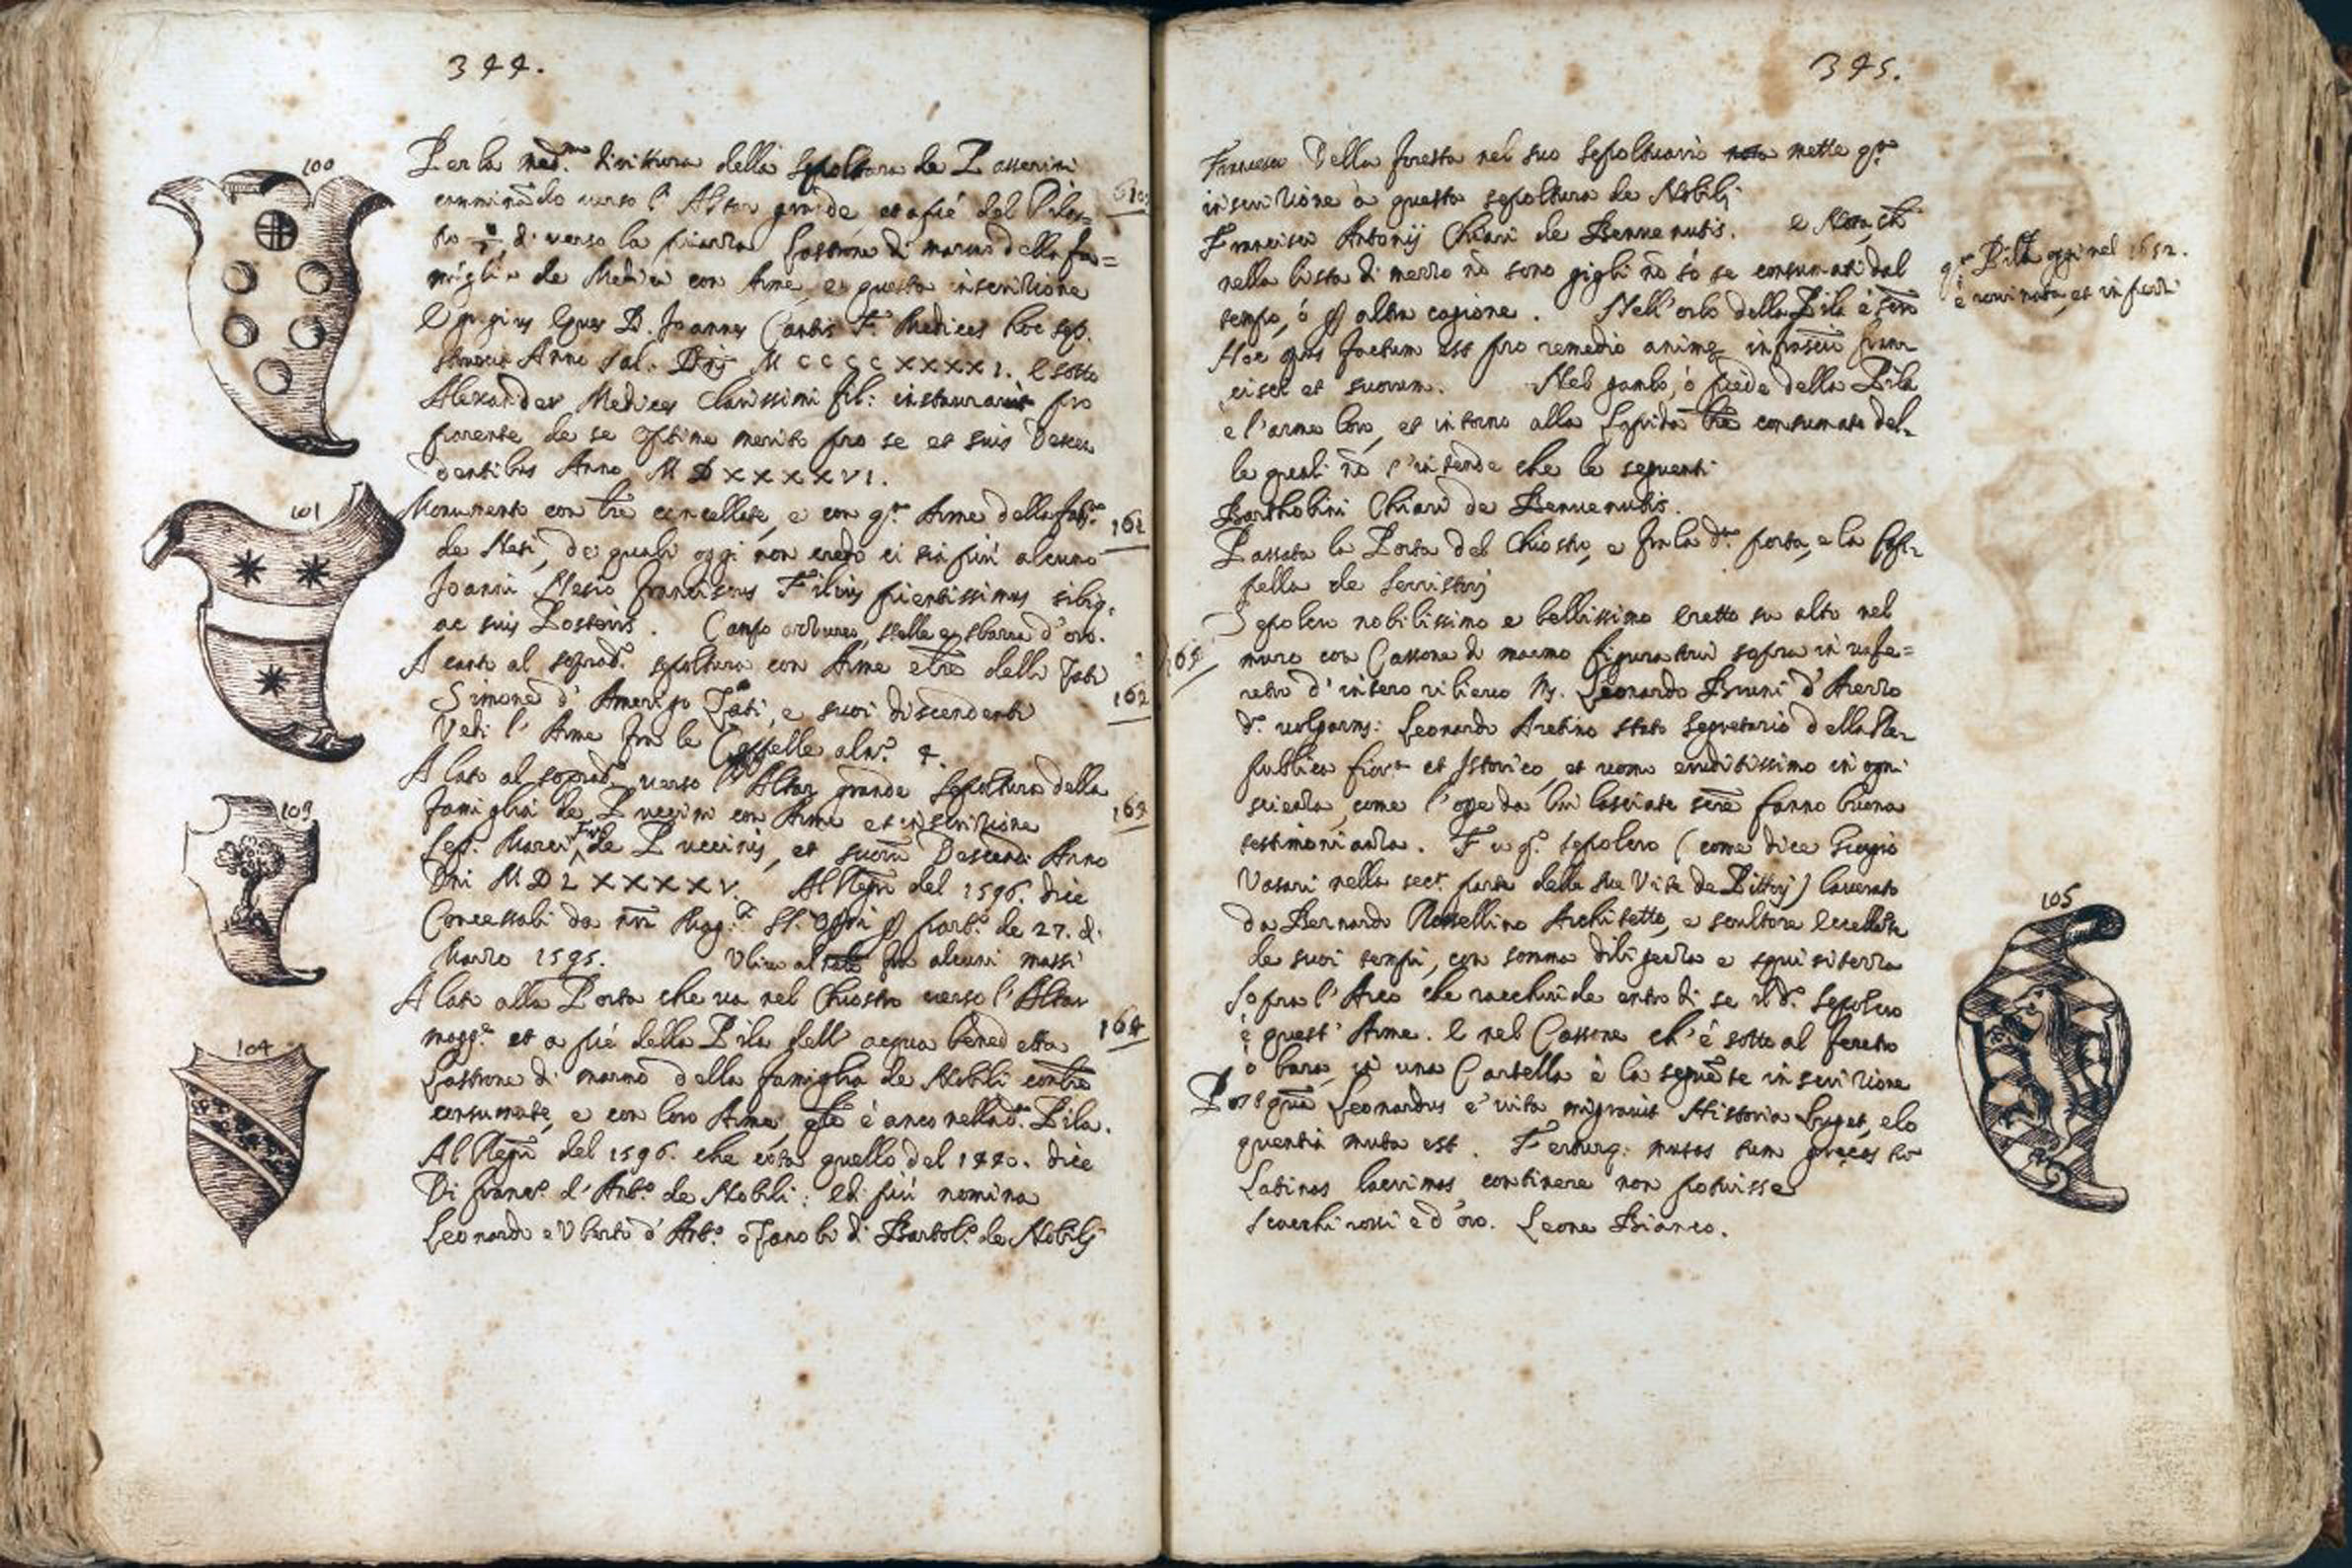 344.
100
Per la med.ma dirittura della sepoltura de Passerini
camminādo verso l'Altar grāde, et a pié del Pilas=
tro di verso la piazza Lastrone di marmo della fa=
miglia de Medici con Arme, e questa inscrizione
Egregius Eques D. Joannes Cantis F. Medices hoc sep.
Anno Sal. Dnj MCCCCXXXXI. E sotto
Alexander Medices Clarissimi fil: instauravit pro
parente de se optime merito pro se et suis Descen
dentibus Anno MDXXXXXVI.
101
Monumento con tre cancellate, e con q.ta Arme della fam.a
de Nesi, de quali oggi non credo ci sia piu' alcuno
Joanni Nesio Franciscus Filius pientissimus sibiq.
ac suis Posteris. Campo azzurro, stelle e sbarra d'oro.
161
Acanto al soprad.o sepoltura con Arme e lre delli Zati
Simone d'Amerigo Zati, e suoi discendenti
Vedi l'Arme fra le Cappelle al n.o 4.
162
A lato al soprad.o verso l'Altar grande sepoltura della
famiglia de Puccini con Arme et inscrizione
Sep. Marci Fr. de Puccinis, et suorū Descend. Anno
Dni MDLXXXXXV. Al Regro del 1596. dice
Concessoli da parto. de 27. di
Marzo 1595. Ulivo al fra alcuni massi
103
163
A lato alla Porta che va nel Chiostro verso l'Altar
magg.e et a pié della Pila dell'acqua benedetta
Lastrone di marmo della famiglia de Nobili con lre
consumate, e con loro Arme, qle é anco nella d.a Pila.
Al Regro del 1596. che cita quello del 1440. dice
Di Franc.o d'Ant.o de Nobili: ed piú nomina
Leonardo e Uberto d'Ant.o e Zanobi di Bartol.o de Nobilj
104
164
345.
Francesco Della foresta nel suo sepoltuario mette q.ta
inscrizione à questa sepoltura de Nobilj
Francisci Antonij Chiari de Benvenutis. e Nota, ch
nella lista di mezzo nō sono gigli nō só se consumati dal
tempo, ó p altra cagione. Nell'orlo della Pila é scro
Hoc opus factum est pro remedio anime infrascti Fran
cisci et suorum. Nel gambo, ó piede della Pila
e l'arme loro, et intorno alla Lapida lre consumate del=
le quali nō s'intende che le seguenti
Bartholini Chiari de Benvenutis.
q.ta Pila oggi nel 1652.
é rovinata, et in pezzi
Passata la Porta del Chiostro, e fra la d.a porta, e la Cap=
pella de Serristorj
165
Sepolcro nobilissimo e bellissimo eretto in alto nel
muro con Cassone di marmo figuratovi sopra in un fe=
retro d'intero rilievo Ms. Leonardo Bruni d'Arezzo
d.o volgarms: Leonardo Aretino stato Segretario della Re=
publica fior.a et Istorico, et uomo eruditissimo in ogni
scienza, come l'ope da lui lasciate scrte fanno buona
testimonianza. Fu q.o sepolcro (come dice Giorgio
Vasari nella sec.a parte delle sue Vite de Pittorj) lavorato
da Bernardo Rossellino Architetto, e scultore eccellēte
de suoi tempi, con somma diligenza e squisitezza
Sopra l'Arco che racchiude entro di se il d.o Sepolcro
é quest'Arme. E nel Cassone ch'é sotto al feretro
ó bara, in una Cartella é la seguēte inscrizione
105
Postquā Leonardus e' vita migravit Historia luget, elo
quentia muta est. Ferturq. musas tum grecas tū
Latinas lacrimas continere non potuisse
Scacchi rossi e d'oro. Leone Bianco.